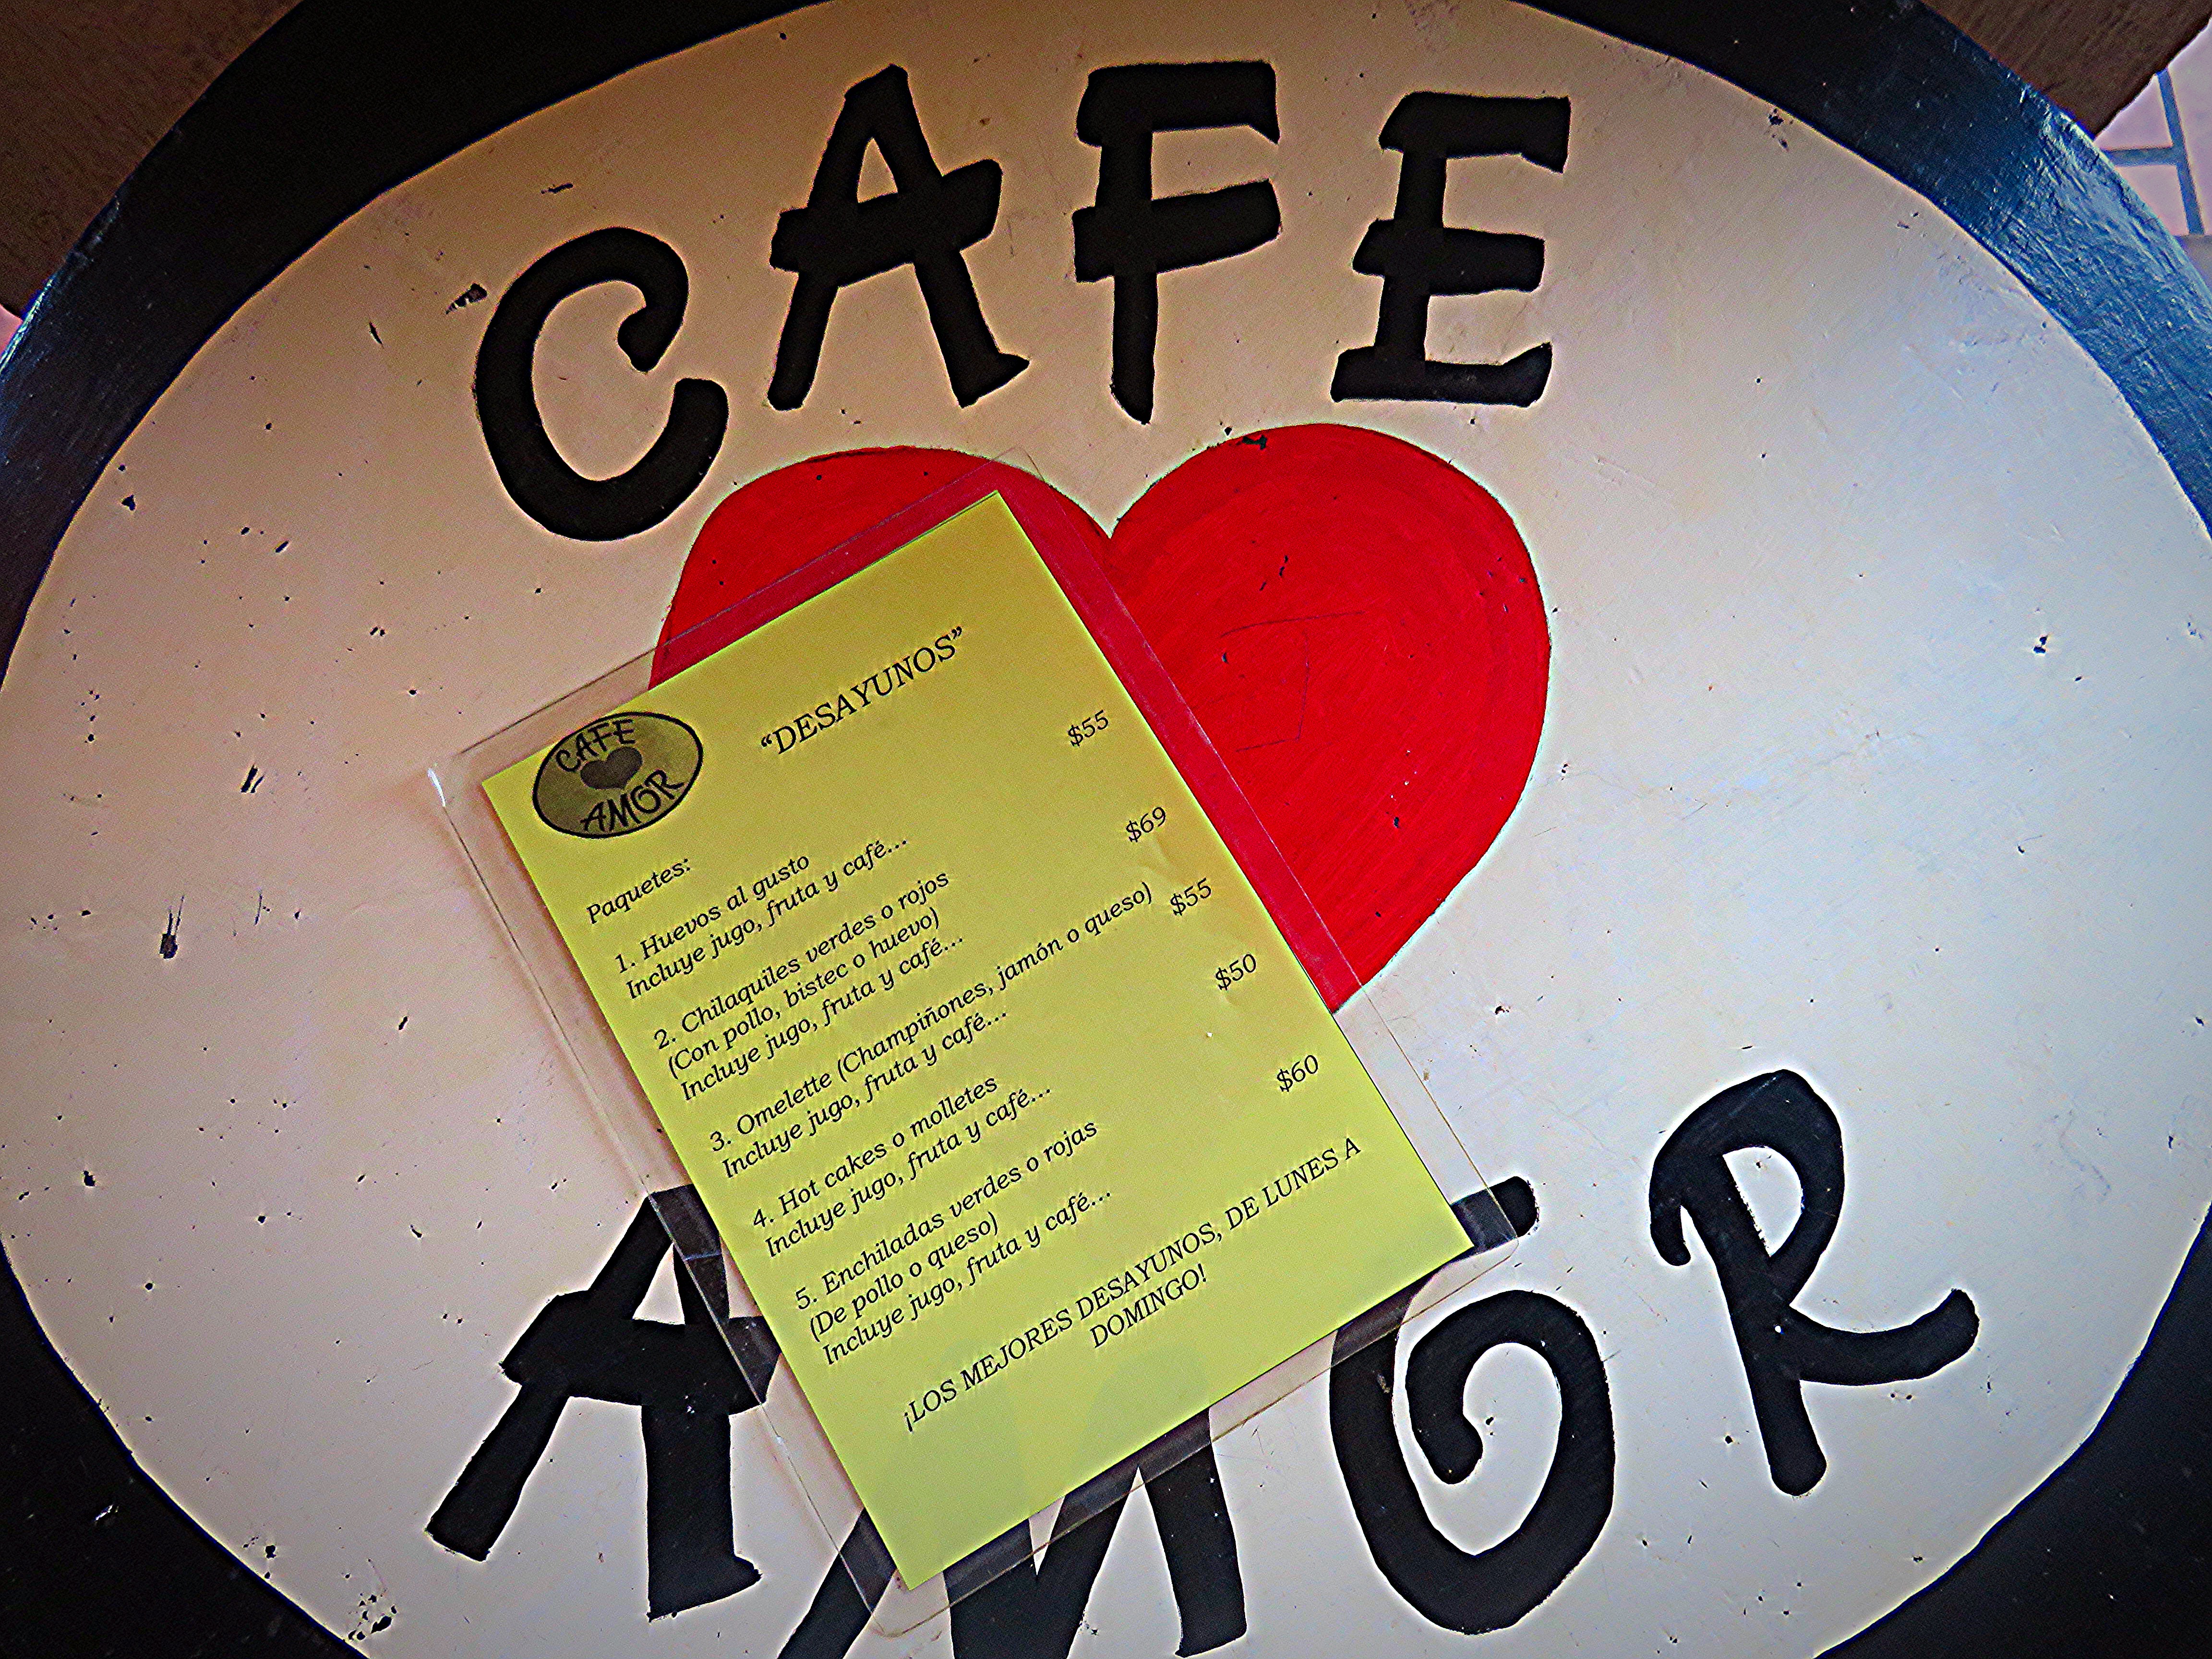 CAFE
AMOR
CAFE
AMOR
"DESAYUNOS"
Paquetes:
1. Huevos al gusto $55
Incluye jugo, fruta y café...
2. Chilaquiles verdes o rojos $69
(Con pollo, bistec o huevo)
Incluye jugo, fruta y café...
3. Omelette (Champiñones, jamón o queso) $55
Incluye jugo, fruta y café...
4. Hot cakes o molletes $50
Incluye jugo, fruta y café...
5. Enchiladas verdes o rojas $60
(De pollo o queso)
Incluye jugo, fruta y café...
¡LOS MEJORES DESAYUNOS, DE LUNES A
DOMINGO!